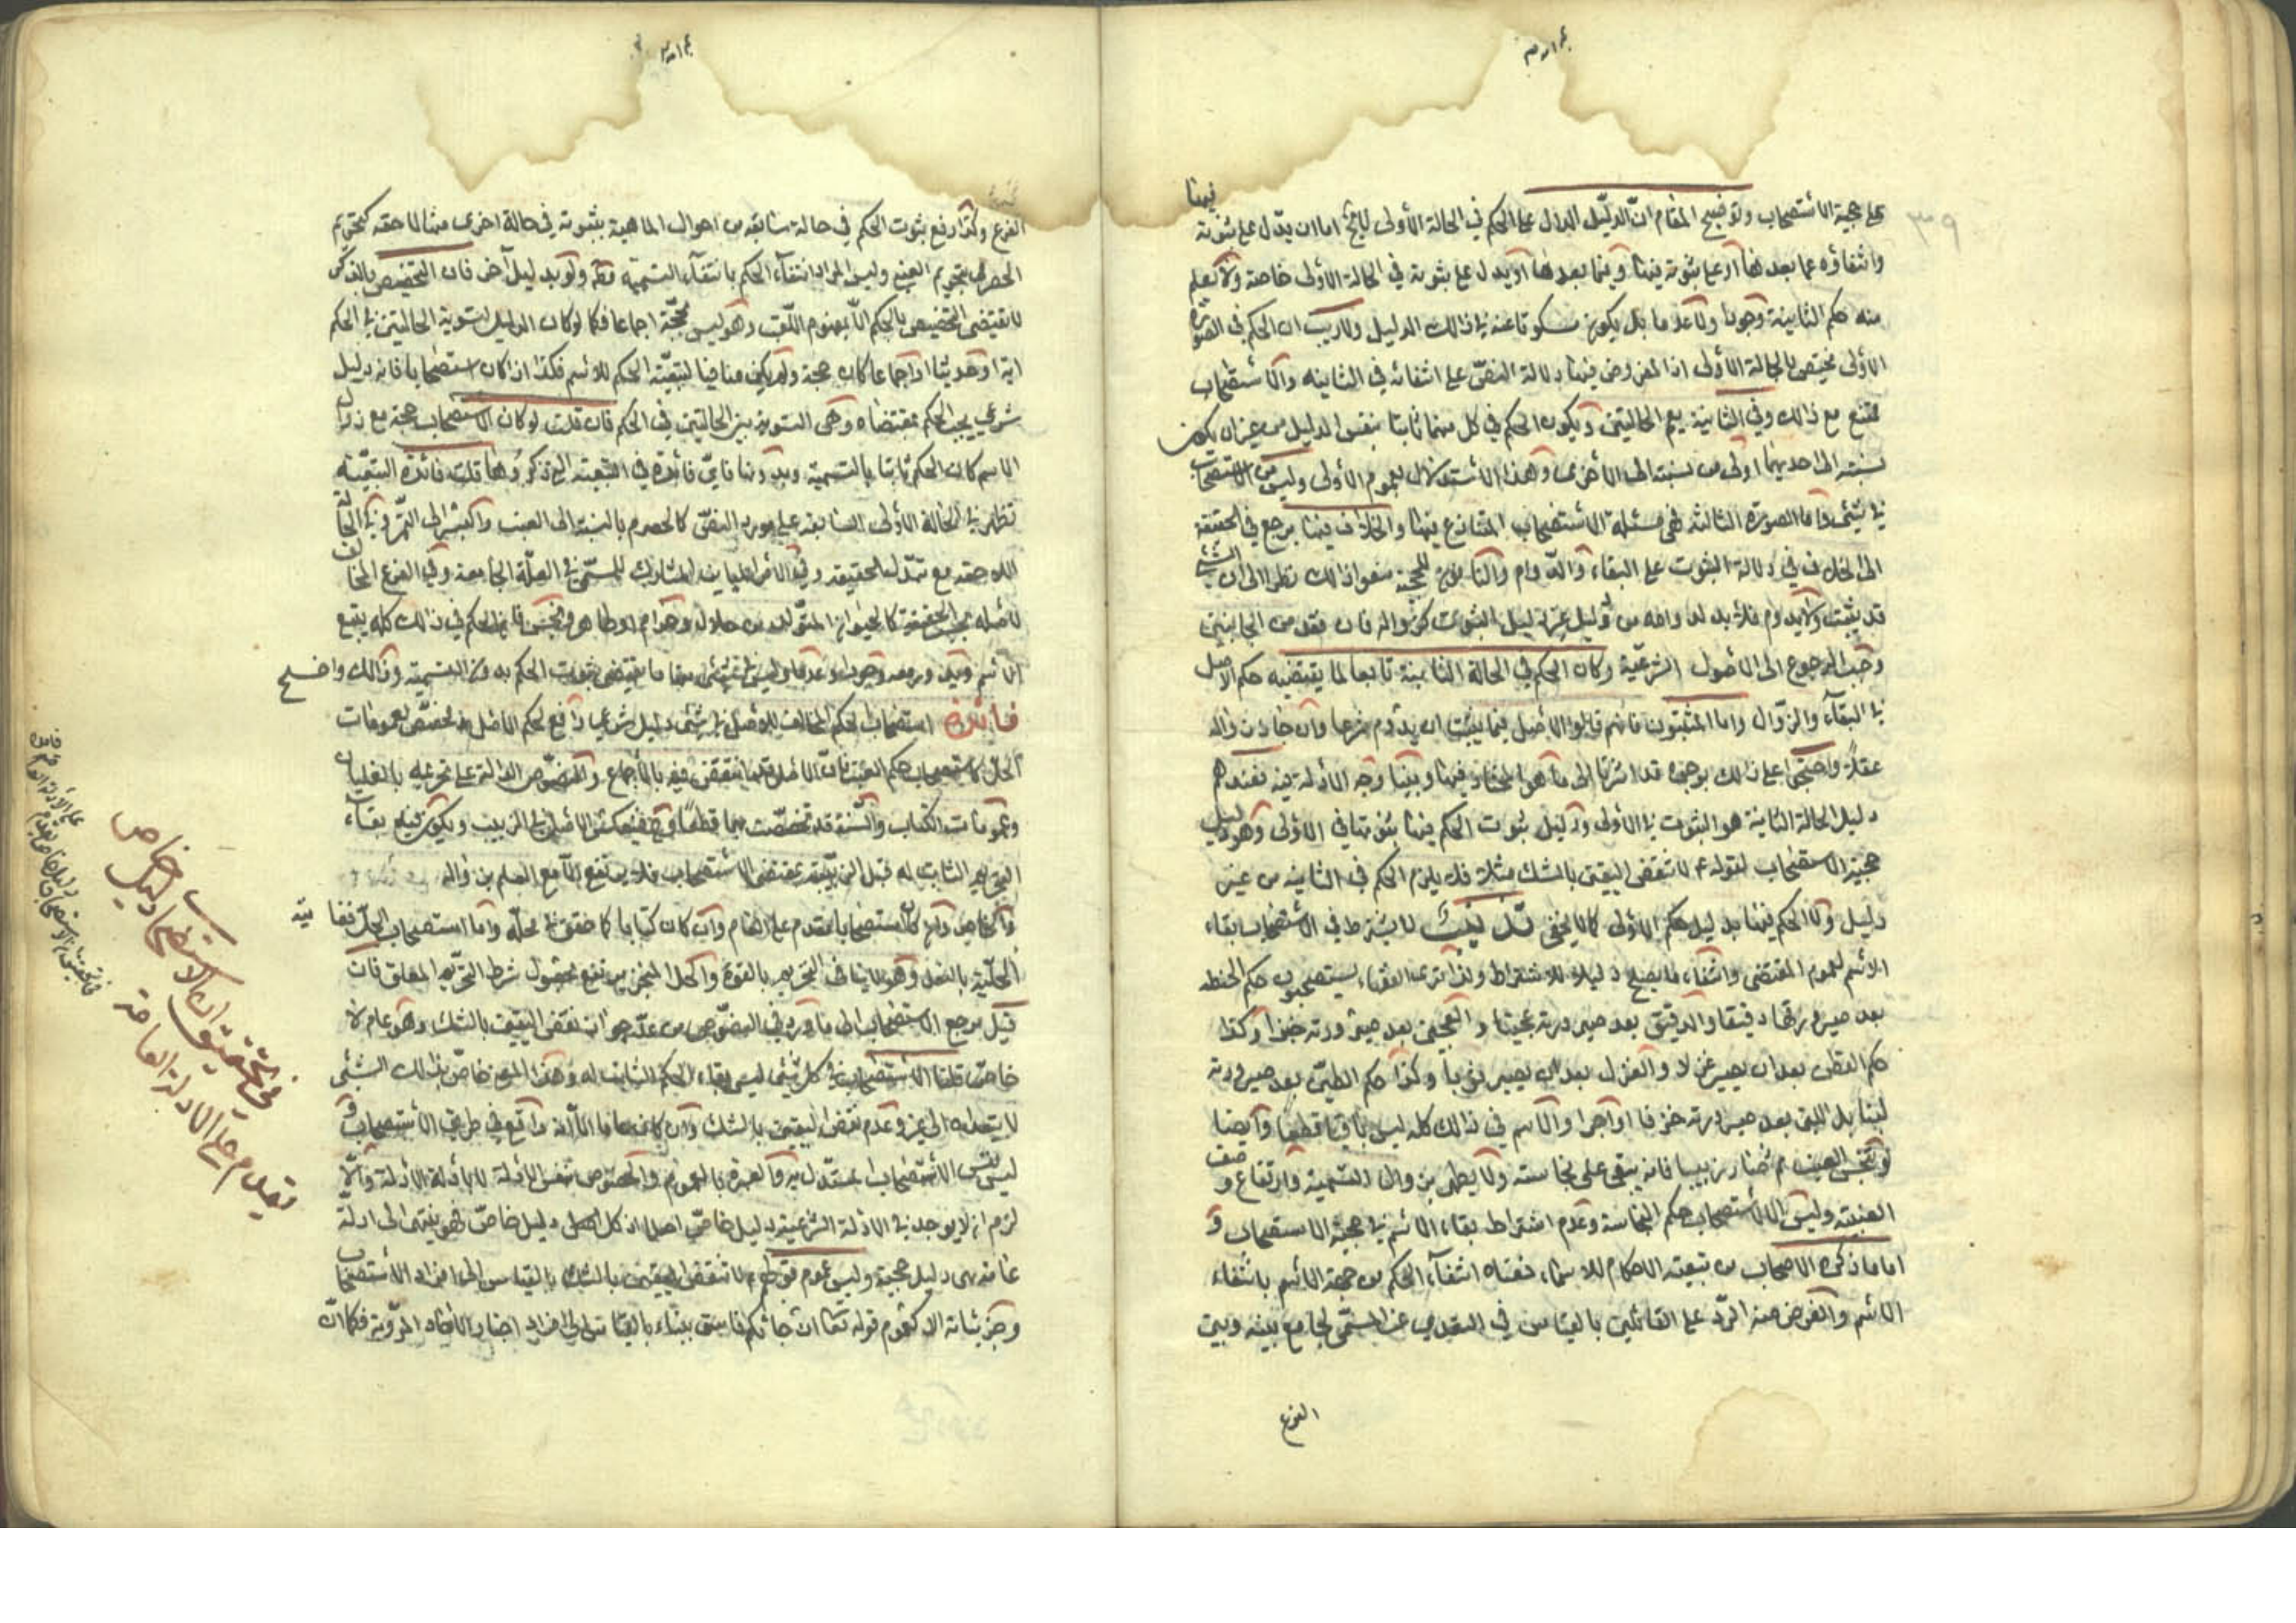 على حجية الاستصحاب وتوضيح المقام ان الدليل الدال على الحكم في الحالة الأولى اما ان يدل على ثبوته فيها
وانتفاؤه عما بعدها او على ثبوته فيها وفيما بعدها او يدل على ثبوته في الحالة الأولى خاصة ولا يعلم
منه حكم الثانية وجودا ولا عدما بل يكون مسكوتا عنه في ذلك الدليل ولا ريب ان الحكم في الصورة
الأولى يختص بالحالة الأولى اذ المفروض فيها دلالة النص على انتفائه في الثانية والاستصحاب
ممتنع مع ذلك وفي الثانية يعم الحالتين ويكون الحكم في كل منهما ثابتا بنفس الدليل من غير ان يكون
نسبته الى احديهما اولى من نسبته الى الأخرى وهذا الاستدلال بعموم الأولى وليس من الاستصحاب
في شيء واما الصورة الثالثة فهي مسئلة الاستصحاب المتنازع فيها والخلاف فيها يرجع في الحقيقة
الى الخلاف في دلالة الثبوت على البقاء والدوام والنافون للحجية منعوا ذلك نظرا الى ان الشيء
قد يثبت ولا يدوم فلا بد لدوامه من دليل غير دليل الثبوت كزواله فان فقد من الجانبين
وجب الرجوع الى الأصول الشرعية وكان الحكم في الحالة الثانية تابعا لما يقتضيه حكم الاصل
في البقاء والزوال واما المثبتون فانهم قالوا الأصل فيما يثبت ان يدوم شرعا وان جاز زواله
عقلا واحتجوا على ذلك بوجوه قد اشرنا الى ما هو المختار فيها وبينا وجه الأدلة فيه فعندهم
دليل الحالة الثانية هو الثبوت في الأولى ودليل ثبوت الحكم فيها ثبوتها في الأولى وهو دليل
حجية الاستصحاب لقوله ع لا تنقض اليقين بالشك مثلا فلا يلزم الحكم في الثانية من غير
دليل ولا الحكم فيها بدليل حكم الأولى كما لا يخفى لا يشترط في الاستصحاب بقاء
الاسم لعموم المقتضى وانتفاء ما يصلح دليلا للاشتراط ولذا ترى الفقهاء يستصحبون حكم الحنطة
بعد صيرورتها دقيقا والدقيق بعد صيرورته عجينا والعجين بعد صيرورته خبزا وكذا
حكم القطن بعد ان يصير غزلا والغزل بعد ان يصير ثوبا وكذا حكم الطين بعد صيرورته
لبنا بل اللبن بعد صيرورته خزفا او آجرا والاسم في ذلك كله ليس باقيا قطعا وايضا
لو تنجس العنب ثم صار زبيبا فانه يبقى على نجاسته ولا يطهر بزوال التسمية وارتفاع وصف
العنبية وليس الا لاستصحاب حكم النجاسة وعدم اشتراط بقاء الاسم في حجية الاستصحاب و
اما ما ذكره الاصحاب من تبعية الاحكام للاسماء فمعناه انتفاء الحكم من جهة الاسم بانتفاء
الاسم والغرض منه الرد على القائلين بالقياس في التعدي عن المسمى لجامع بينه وبين
الفرع
الفرع وكذا رفع ثبوت الحكم في حالة سابقة من احوال الماهية بثبوته في حالة اخرى منها لاحقة كتحريم
الحصرم بتحريم العنب وليس المراد انتفاء الحكم بانتفاء التسمية ولو بدليل آخر فان التخصيص بالذكر
لا يقتضى التخصيص بالحكم الا بمفهوم اللقب وهو ليس بحجة اجماعا فكما لو كان الدليل لتسوية الحالتين في الحكم
آية او حديثا او اجماعا كان حجة ولم يكن منافيا لتبعية الحكم للاسم فكذا اذا كان استصحابا فانه دليل
شرعي يجب الحكم بمقتضاه وهى التسوية بين الحالتين في الحكم فان قلت لو كان الاستصحاب حجة مع زوال
الاسم كان الحكم ثابتا بالتسمية وبدونها فاي فائدة في التبعية التي ذكروها قلت فائدة التبعية
تظهر في الحالة الأولى السابقة على مورد النص كالحصرم بالنسبة الى العنب والبسر الى التمر وفي الحالة
اللاحقة مع تبدل الحقيقة وفي الأفراد المباينة المشاركة للمسمى في العلة الجامعة وفي الفرع المخالف
لأصله الحقيقة كالحيوان المتولد من حلال وحرام او طاهر ونجس فان الحكم في ذلك كله يتبع
الاسم ويدور معه وجودا وعدما وليس في شئ منها ما يقتضى ثبوت الحكم بدون التسمية وذلك واضح
فائدة استصحاب الحكم المخالف للاصل في شئ دليل شرعي رافع لحكم الاصل ومخصص لعمومات
الحل كاستصحاب حكم العنب فان الاصل قد انتقض فيه بالاجماع والنصوص الدالة على تحريمه بالغليان
وعمومات الكتاب والسنة قد تخصصت بهما قطعا الاصل في الزبيب ويكون فيه بقاء
التحريم الثابت له قبل الزبيبية بمقتضى الاستصحاب فلا يرتفع الا مع العلم بزواله
والخاص وان كان استصحابا مقدم على العام وان كان كتابا كما حقق في محله واما استصحاب الحل فغايته
الحلية بالفعل وهو لا ينافي التحريم بالقوة والحل المنجز يرتفع بحصول شرط التحريم المعلق فان
قيل مرجع الاستصحاب الى ما ورد في النصوص من عدم جواز نقض اليقين بالشك وهو عام لا
خاص قلنا الاستصحاب في كل شئ ليس الا بقاء الحكم الثابت له وهذا المعنى خاص بذلك الشئ
لا يتعداه الى غيره وعدم نقض اليقين بالشك وان كان عاما الا انه واقع في طريق الاستصحاب و
ليس نفس الاستصحاب المستدل به والعبرة بالعموم والخصوص بنفس الأدلة لا بأدلة الأدلة والا
لزم ان لا يوجد في الادلة الشرعية دليل خاص اصلا اذ كل دليل خاص فهو ينتهى الى ادلة
عامة هى دليل حجيته وليس عموم قولهم ع لا تنقض اليقين بالشك بالقياس الى افراد الاستصحاب
وجزئياته الا كعموم قوله تعالى ان جائكم فاسق بنباء بالقياس الى افراد اخبار الآحاد المروية فكما ان
في تحقيق ان الاستصحاب دليل خاص
يقدم على الادلة العامة